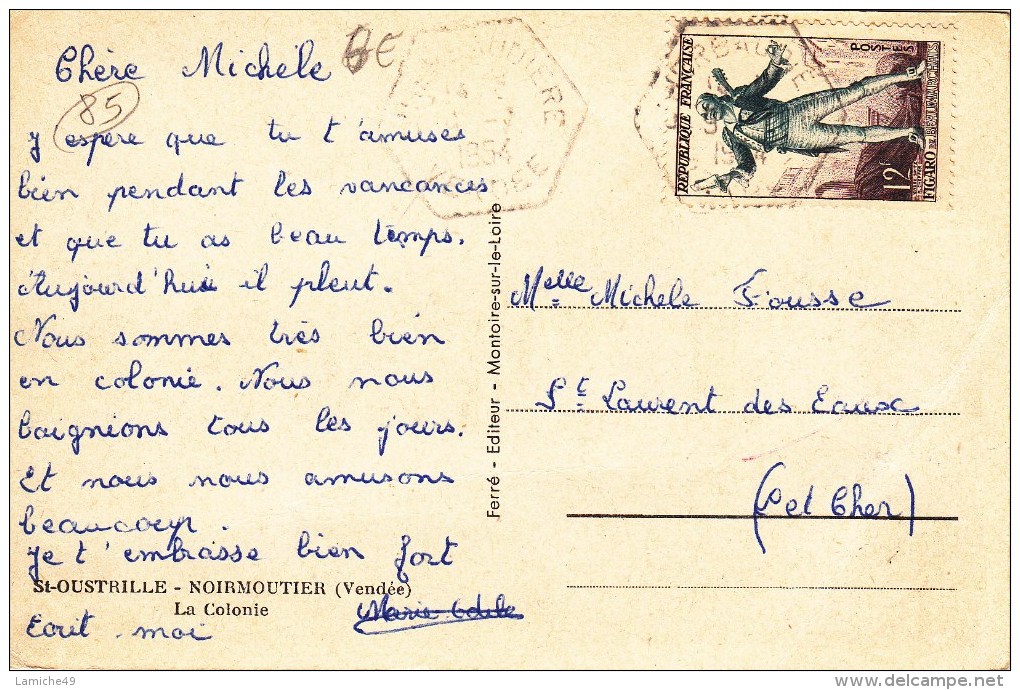 Chère Michèle
BE
85
J'espère que tu t'amuses
bien pendant les vancances
et que tu as beau temps.
Aujourd'hui il pleut.
Nous sommes très bien
en colonie. Nous nous
baignions tous les jours.
Et nous nous amusons
beaucoup.
Je t'embrasse bien fort
St-OUSTRILLE - NOIRMOUTIER (Vendée)
La Colonie
Ecrit moi
Marie Odile
Ferré - Editeur - Montoire-sur-le-Loire
1954
REPUBLIQUE FRANÇAISE
POSTES
12F
FIGARO DE BEAUMARCHAIS
Melle Michele Fousse
St Laurent des Eaux
(L et Cher)
Lamiche49
delcampe.net